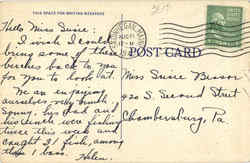 THIS SPACE FOR WRITING MESSAGES
Hello Miss Susie:
I wish I could
bring some of these
beeches back to you
for you to look at.
We are enjoying
ourselves very much
Sonny, his Dad and
his Uncle were fishing
twice this week and
caught 21 fish, among
them 1 bass.
Helen.
POST CARD
Miss Susie
920 S. Second Street
Chambersburg,
Pa